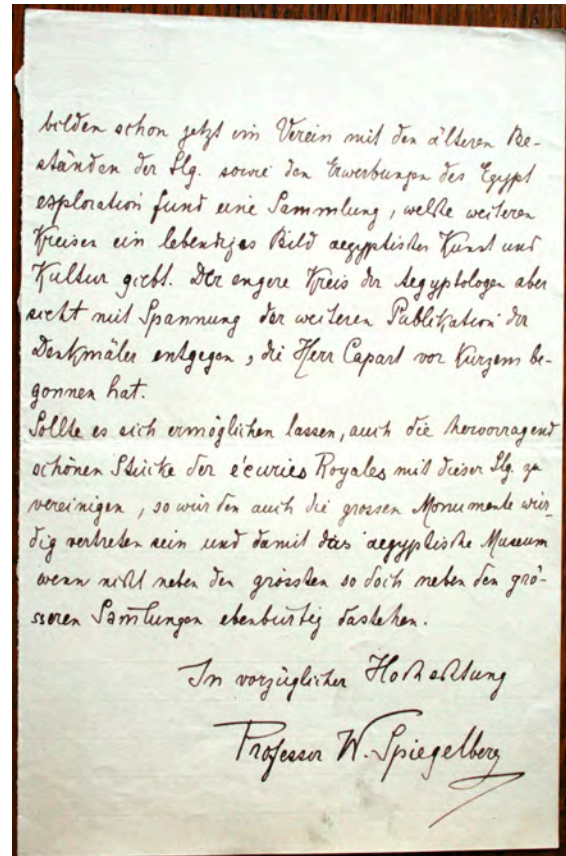 bilden schon jetzt im Verein mit den älteren Be-
ständen der Slg. sowie den Erwerbungen des Egypt
exploration fund eine Sammlung, welche weiteren
Kreisen ein lebendiges Bild aegyptischer Kunst und
Kultur giebt. Der engere Kreis der Aegyptologen aber
sieht mit Spannung der weiteren Publikation der
Denkmäler entgegen, die Herr Capart vor Kurzem be-
gonnen hat.
Sollte es sich ermöglichen lassen, auch die hervorragend
schönen Stücke der écuries Royales mit dieser Slg. zu
vereinigen, so würden auch die grossen Monumente wür-
dig vertreten sein und damit das aegyptische Museum
wenn nicht neben den grössten so doch neben den grö-
sseren Samlungen ebenbürtig dastehen.
In vorzüglicher Hochachtung
Professor W. Spiegelberg